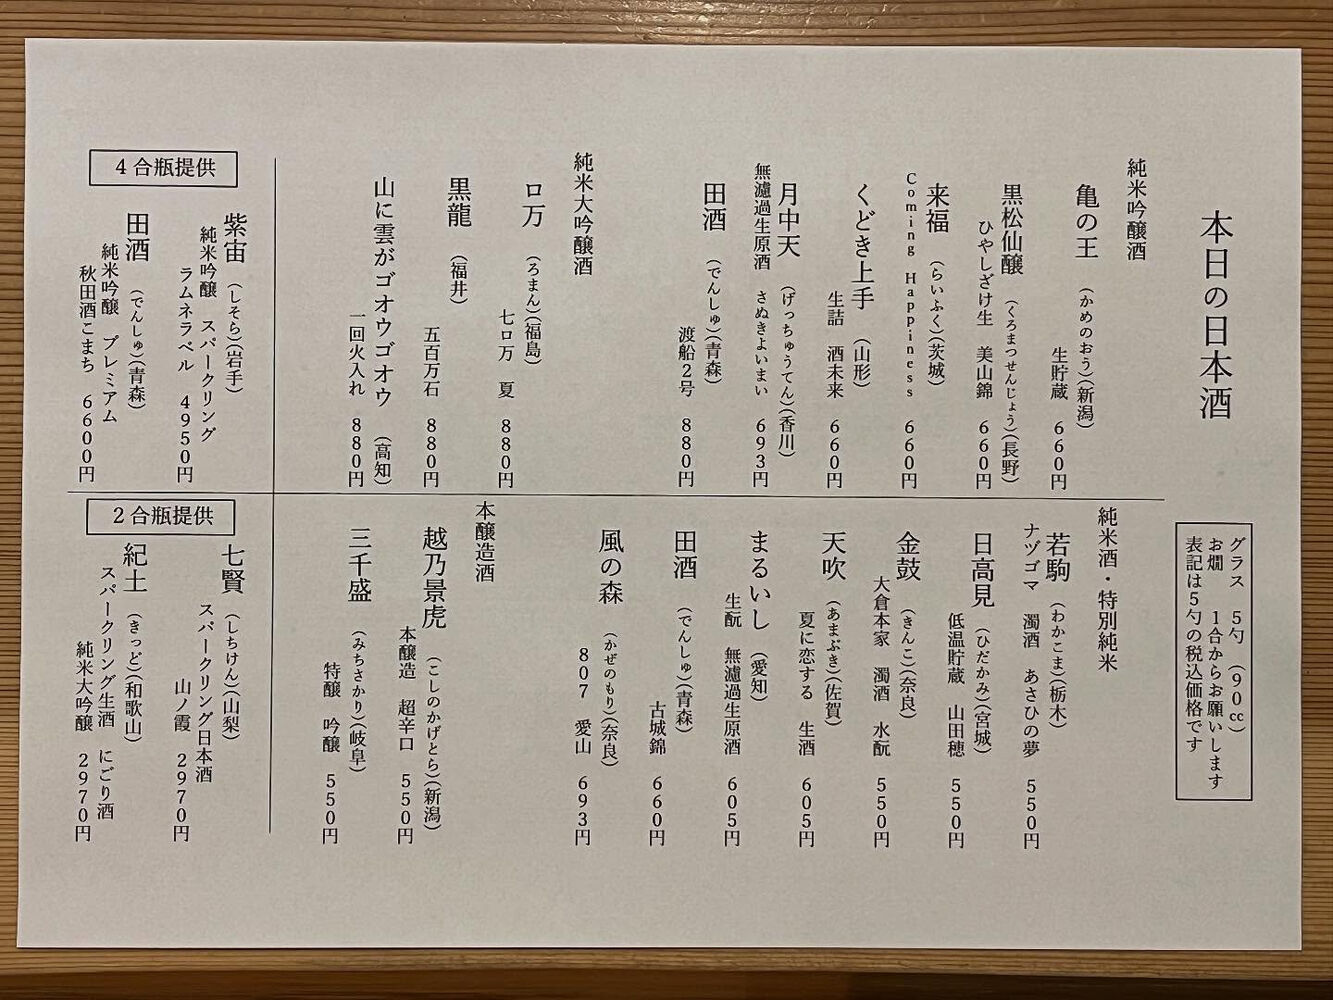 本日の日本酒
グラス　5勺　(90cc)
お燗　1合からお願いします
表記は5勺の税込価格です
純米吟醸酒
亀の王　(かめのおう)(新潟)
生貯蔵　660円
黒松仙醸　(くろまつせんじょう)(長野)
ひやしざけ生　美山錦　660円
来福　(らいふく)(茨城)
Coming Happiness　660円
くどき上手　(山形)
生詰　酒未来　660円
月中天　(げっちゅうてん)(香川)
無濾過生原酒　さぬきよいまい　693円
田酒　(でんしゅ)(青森)
渡船2号　880円
純米大吟醸酒
ロ万　(ろまん)(福島)
七ロ万　夏　880円
黒龍　(福井)
五百万石　880円
山に雲がゴオウゴオウ　(高知)
一回火入れ　880円
純米酒・特別純米
若駒　(わかこま)(栃木)
ナヅゴマ　濁酒　あさひの夢　550円
日高見　(ひだかみ)(宮城)
低温貯蔵　山田穂　550円
金鼓　(きんこ)(奈良)
大倉本家　濁酒　水酛　550円
天吹　(あまぶき)(佐賀)
夏に恋する　生酒　605円
まるいし　(愛知)
生酛　無濾過生原酒　605円
田酒　(でんしゅ)(青森)
古城錦　660円
風の森　(かぜのもり)(奈良)
807　愛山　693円
本醸造酒
越乃景虎　(こしのかげとら)(新潟)
本醸造　超辛口　550円
三千盛　(みちさかり)(岐阜)
特醸　吟醸　550円
4合瓶提供
紫宙　(しそら)(岩手)
純米吟醸　スパークリング
ラムネラベル　4950円
田酒　(でんしゅ)(青森)
純米吟醸　プレミアム
秋田酒こまち　6600円
2合瓶提供
七賢　(しちけん)(山梨)
スパークリング日本酒
山ノ霞　2970円
紀土　(きっど)(和歌山)
スパークリング生酒　にごり酒
純米大吟醸　2970円